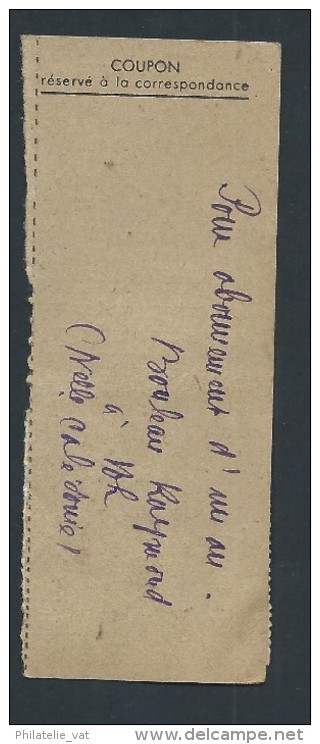 COUPON
réservé à la correspondance
Pour abonnement d'un an.
Bouleau Raymond
à Voh
(Nelle Calédonie)
Philatelie_vat
www.delcampe.net